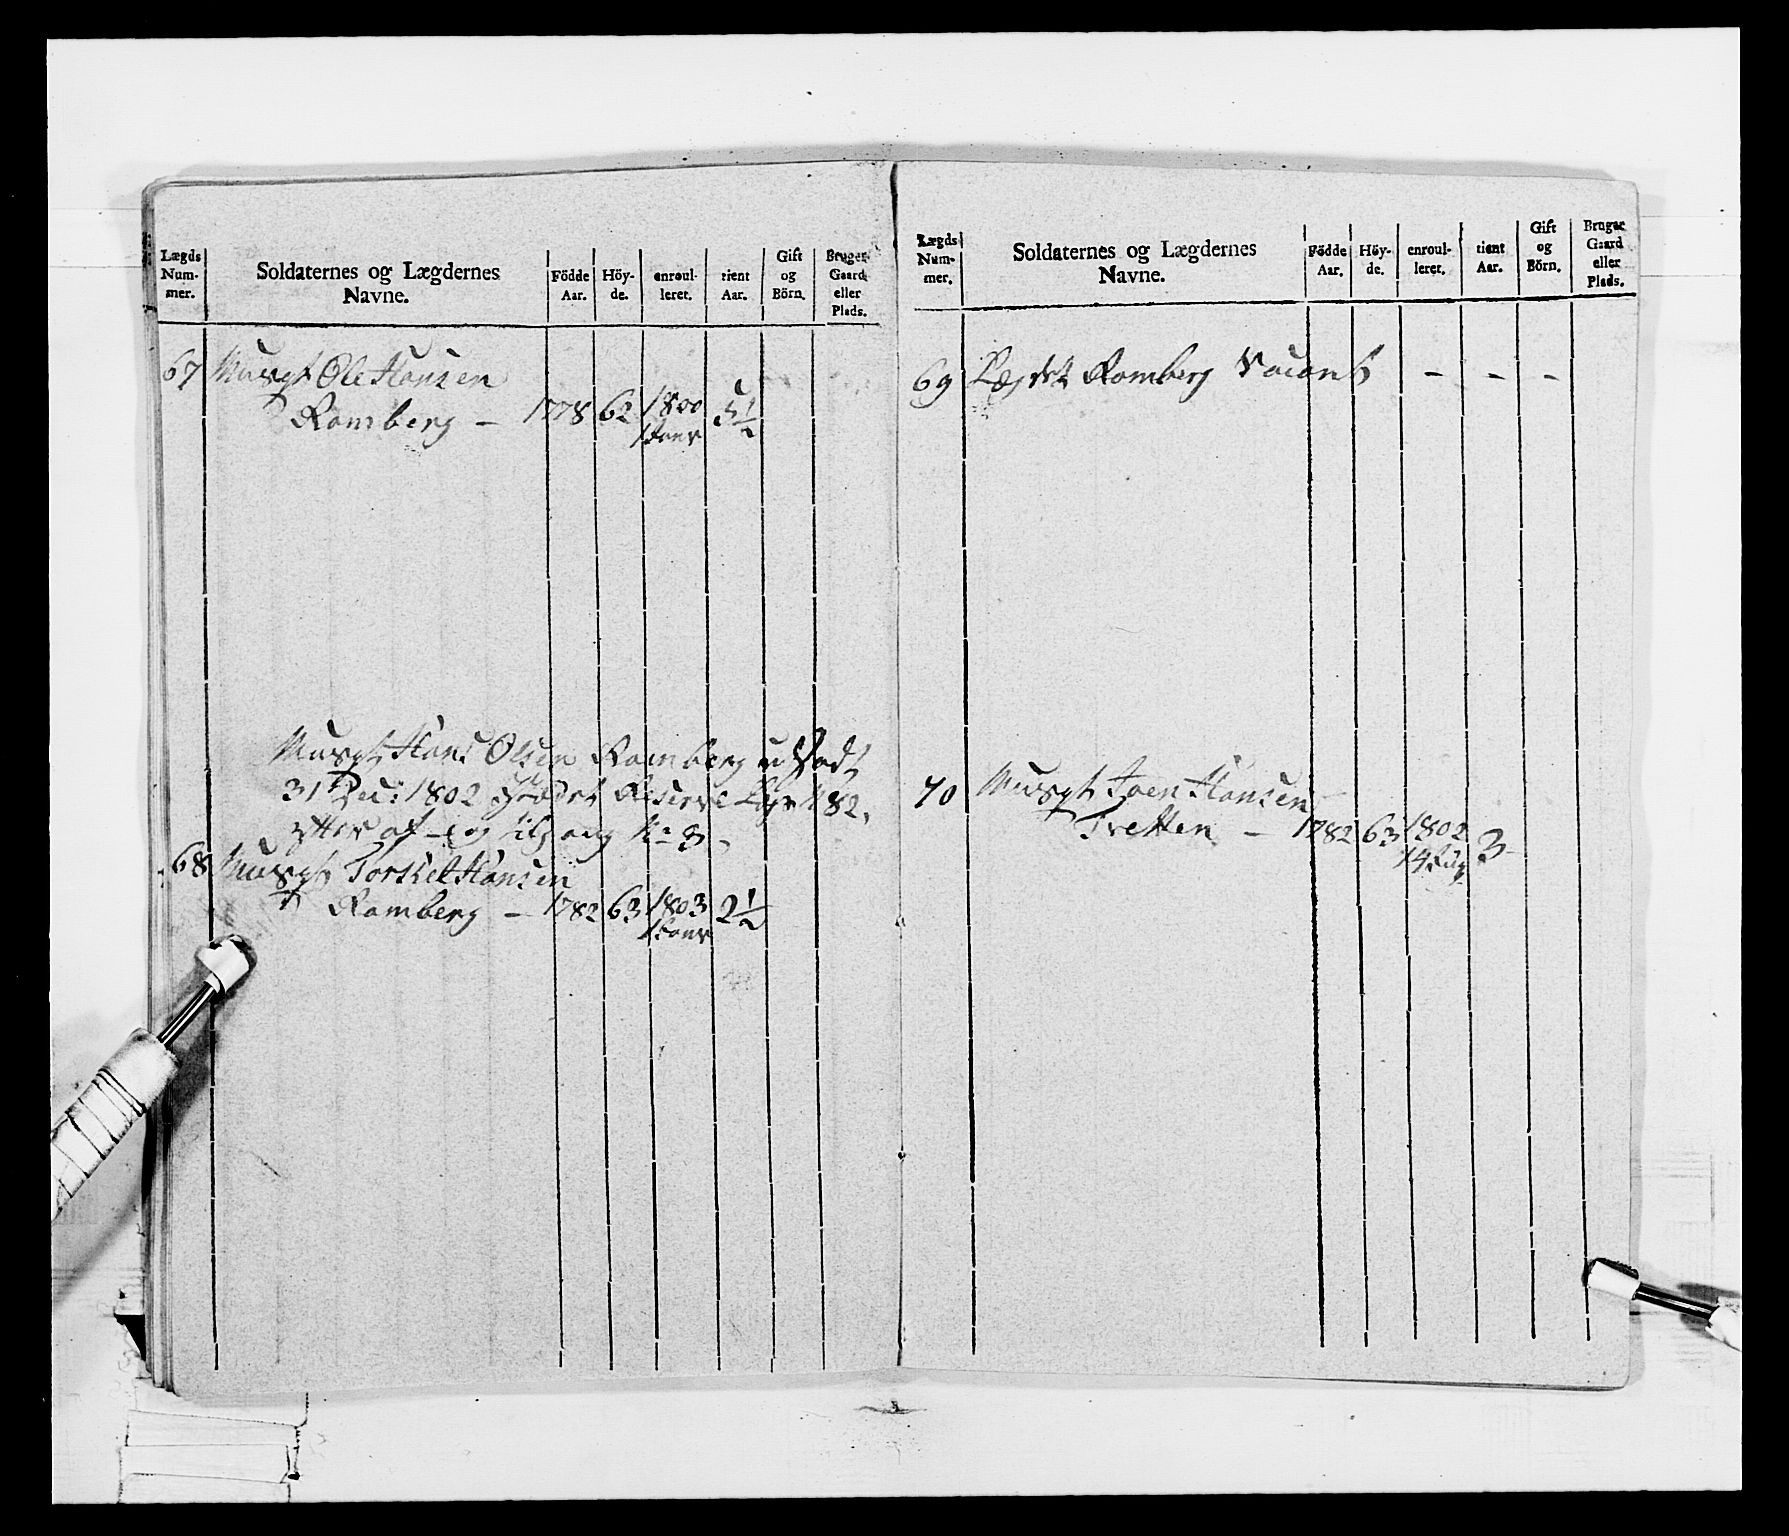 Lægds Num- mer. Soldaternes og Lægdernes Navne. Födde Aar. Höy- de. enroul- leret. tient Aar. Gift og Börn. Bruger Gaard eller Plads.
67 Musqt Ole Hansen
Ramberg — 1778 62 1800 5½
1 Janr
Musqt Hans Olsen Ramberg
31 Dec: 1802 Reserve 82,
af og
68 Musqt Torstel Hansen
Ramberg — 1782 63 1803 2½
1 Janr
Lægds Num- mer. Soldaternes og Lægdernes Navne. Födde Aar. Höy- de. enroul- leret. tient Aar. Gift og Börn. Bruger Gaard eller Plads.
69 Lægdet Ramberg Vacant — — —
70 Musqt Joen Hansen
Tretten — 1782 63 1802 3
14